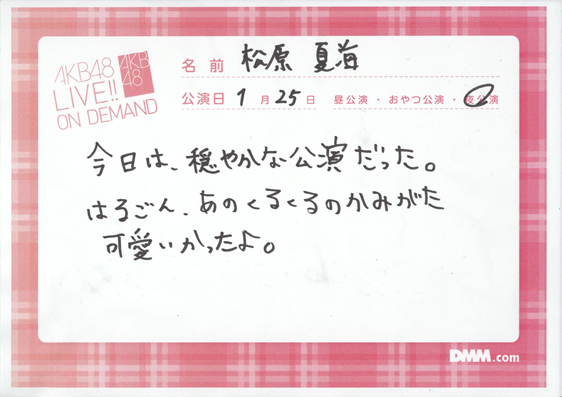 AKB48
LIVE!!
ON DEMAND
AKB
48
名前 松原 夏海
公演日 1月25日 昼公演・おやつ公演・夜公演
今日は、穏やかな公演だった。
はるごん、あのくるくるのかみがた
可愛いかったよ。
DMM.com